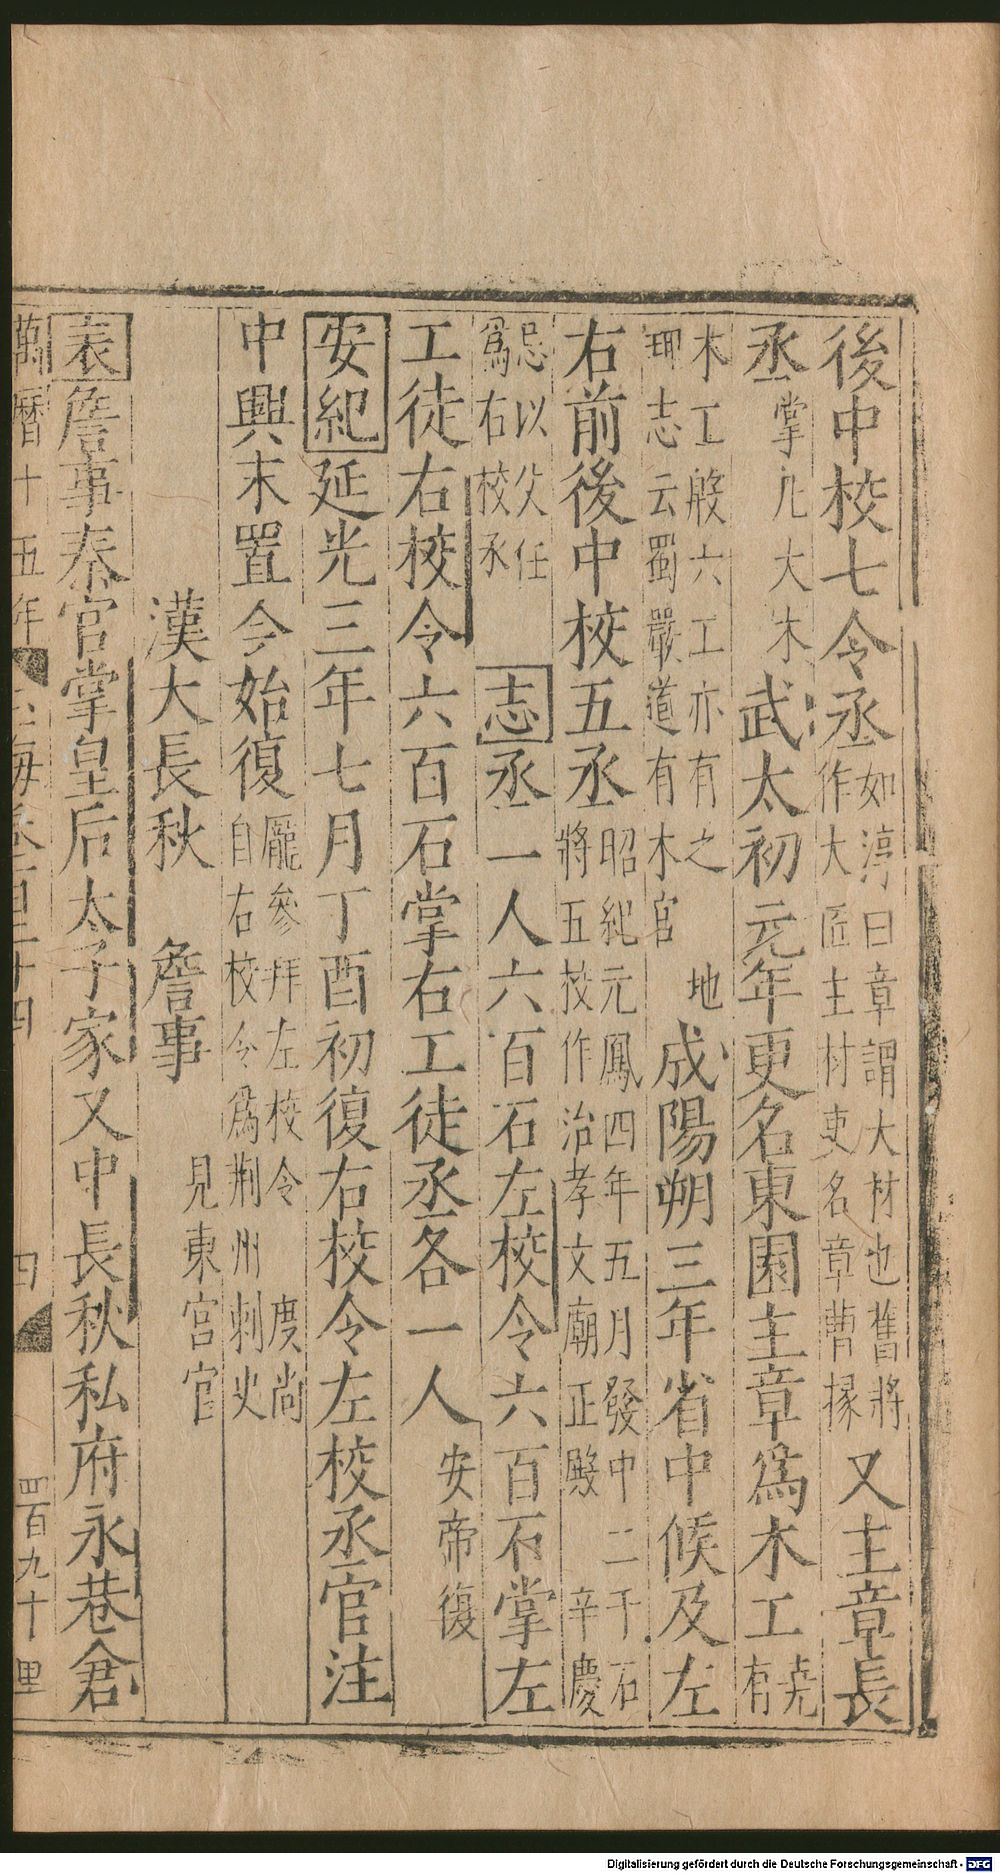 後中校七令丞如淳曰章謂大材也舊將作大匠主材吏名章曹掾又主章長
丞掌凡大木武太初元年更名東園主章爲木工堯有
木工殷六工亦有之地珊志云蜀嚴道有木官成陽朔三年省中候及左
右前後中校五丞昭紀元鳳四年五月發中二千石將五校作治孝文廟正殿辛慶
忌以父任爲右校丞志丞一人六百石左校令六百石掌左
工徒右校令六百石掌右工徒丞各一人安帝復
安紀延光三年七月丁酉初復右校令左校丞官注
中興末置今始復龐參拜左校令度尚自右校令爲荆州刺史
漢大長秋詹事見東宮官
表詹事秦官掌皇后太子家又中長秋私府永巷倉
萬曆十五年 玉海卷一百二十四 四 四百九十里
Digitalisierung gefördert durch die Deutsche Forschungsgemeinschaft - DFG